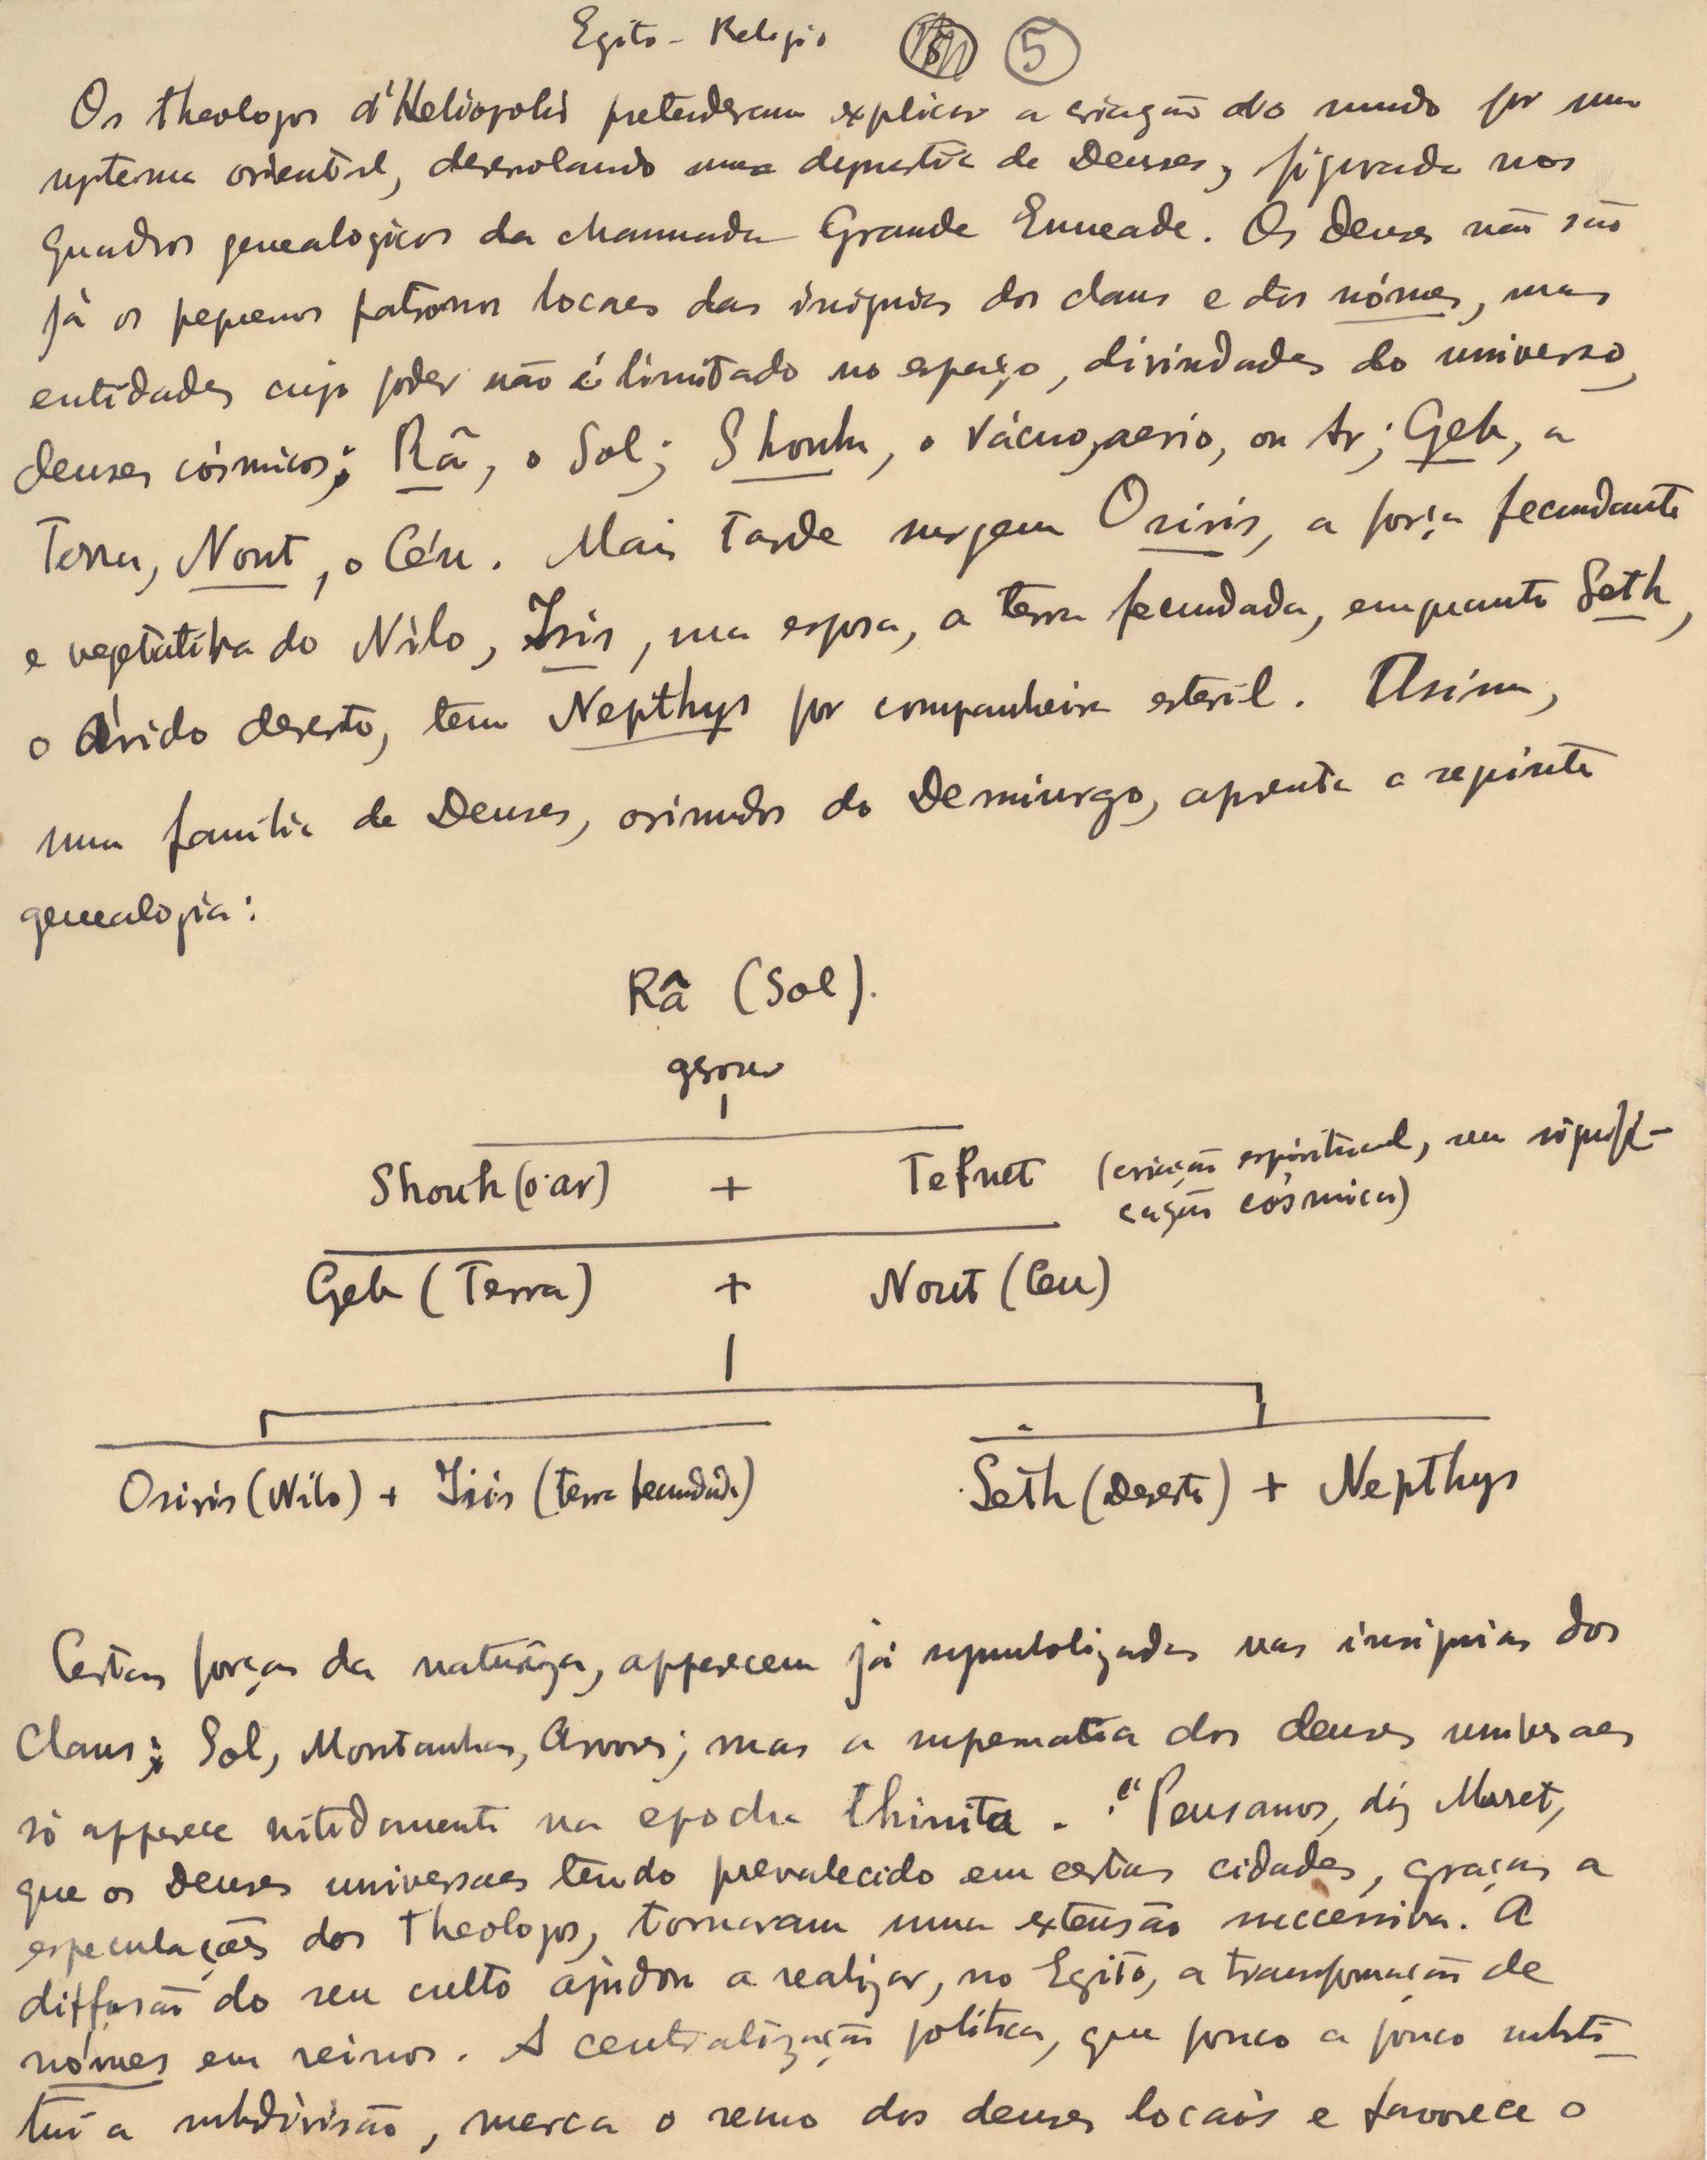 Egito - Religião 5
Os theologos d'Heliopolis pretenderam explicar a criação do mundo por um
systema oriental, desenrolando uma dynastia de Deuses, figurada nos
Quadros genealogicos da chamada Grande Enneade. Os Deuses não são
já os pequenos patronos locaes das insignias dos clans e dos nómes, mas
entidades cujo poder não é limitado no espaço, divindades do universo,
deuses cósmicos: Râ, o Sol; Shouh, o Vácuo, aerio, ou Ar; Geb, a
Terra, Nout, o Céu. Mais tarde surgem Osiris, a força fecundante
e vegetativa do Nilo, Isis, sua esposa, a terra fecundada, emquanto Seth,
o árido deserto, tem Nepthys por companheira esteril. Assim,
uma familia de Deuses, oriundos do Demiurgo, apresenta a seguinte
genealogia:
Râ (Sol).
gerou
Shouh (o ar) + Tefnet (criação espiritual, sem signifi-
cação cósmica)
Geb (Terra) + Nout (Ceu)
Osiris (Nilo) + Isis (terra fecundada) Seth (Deserto) + Nepthys
Certas forças da natureza, apparecem já symbolizadas nas insignias dos
Clans: Sol, Montanhas, Arvores; mas a supremacia dos deuses universaes
só apparece nitidamente na epocha thinita. "Pensamos, diz Moret,
que os Deuses universaes tendo prevalecido em certas cidades, graças a
especulações dos Theologos, tomaram uma extensão successiva. A
diffusão do seu culto ajudou a realizar, no Egito, a transformação de
nómes em reinos. A centralização politica, que pouco a pouco substi-
tui a subdivisão, merca o remo dos deuses locais e favorece o